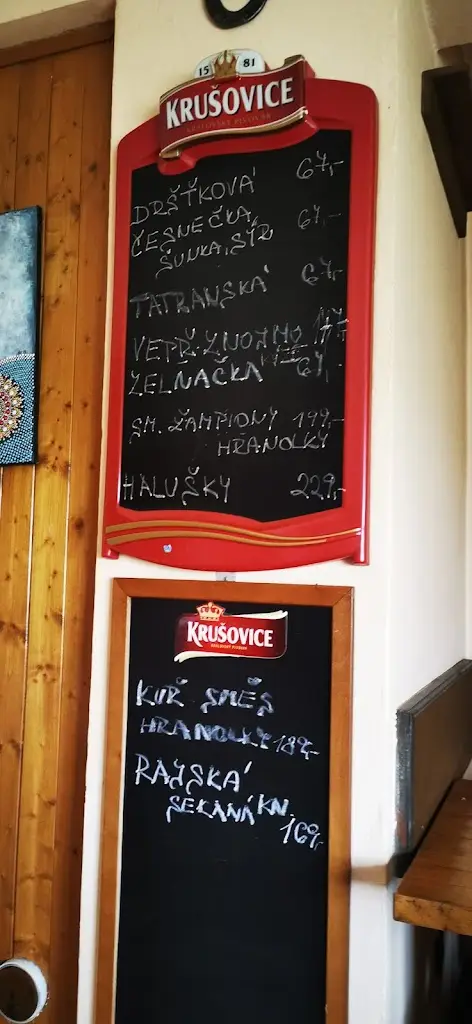 15 81
KRUŠOVICE
KRÁLOVSKÝ PIVOVAR
DRŠŤKOVÁ 67,-
ČESNEČKA, 67,-
ŠUNKA, SÝR
TATRANSKÁ 67,-
VEPŘ. ZNOJMO
ZELNAČKA 67,-
SM. ŽAMPIONY 199,-
HRANOLKY
HALUŠKY 229,-
KRUŠOVICE
KRÁLOVSKÝ PIVOVAR
KUŘ SMĚS
HRANOLKY 189,-
RAJSKÁ
SEKANÁ KN.
169,-